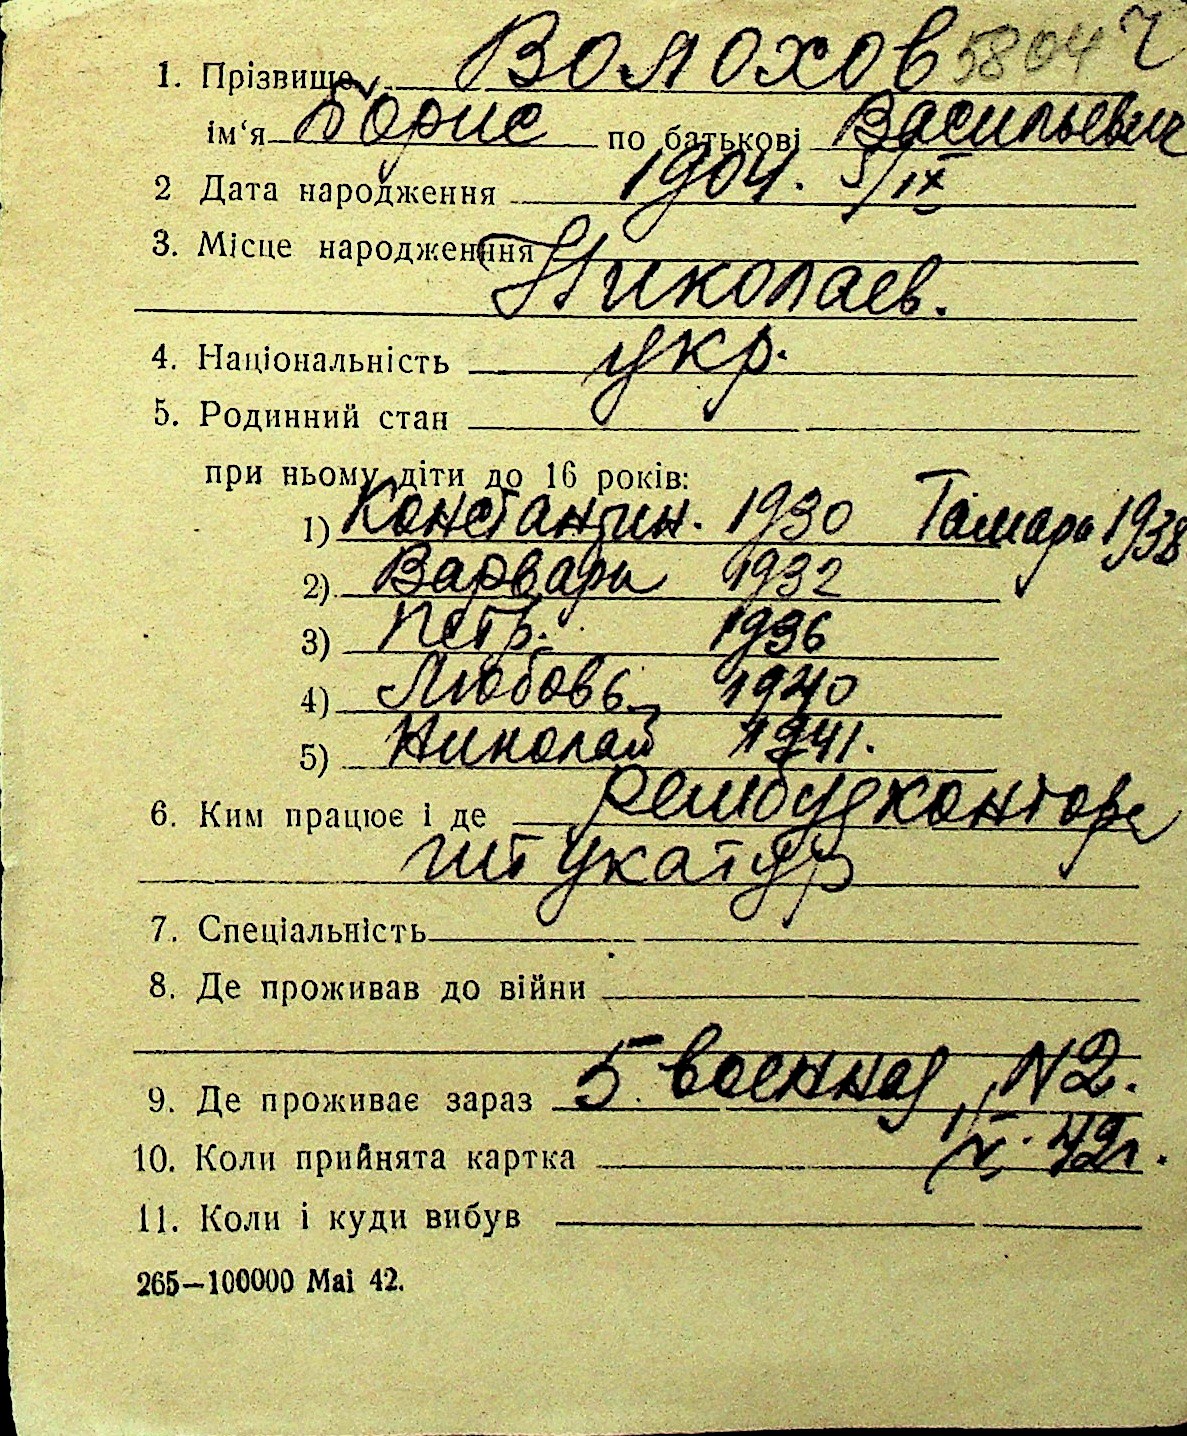 1. Прізвище Волохов 5804 ч
ім‘я Борис по батькові Васильевич
2 Дата народження 1904. 5/IX
3. Місце народження
Николаев.
4. Національність укр.
5. Родинний стан
при ньому діти до 16 років:
1) Константин. 1930 Тамара 1938
2) Варвара 1932
3) Петр. 1936
4) Любовь 1940
5) Николай 1941.
6. Ким працює і де Рембудконтора
штукатур
7. Спеціальність
8. Де проживав до війни
9. Де проживає зараз 5 военная, N2.
10. Коли прийнята картка 42г.
11. Коли і куди вибув
265—100000 Mai 42.